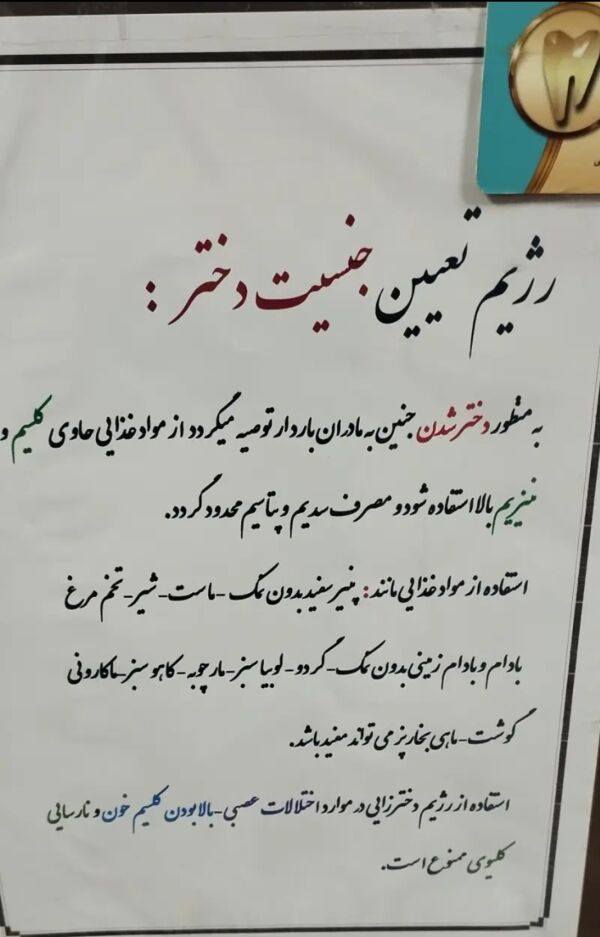 رژیم تعیین جنسیت دختر :
به منظور دختر شدن جنین به مادران باردار توصیه میگردد از مواد غذایی حاوی کلسیم و
منیزیم بالا استفاده شود و مصرف سدیم و پتاسیم محدود گردد.
استفاده از مواد غذایی مانند: پنیر سفید بدون نمک - ماست - شیر - تخم مرغ
بادام و بادام زمینی بدون نمک - گردو - لوبیا سبز - مارچوبه - کاهو سبز - ماکارونی
گوشت - ماهی بخارپز می تواند مفید باشد.
استفاده از رژیم دخترزایی در موارد اختلالات عصبی - بالا بودن کلسیم خون و نارسایی
کلیوی ممنوع است.